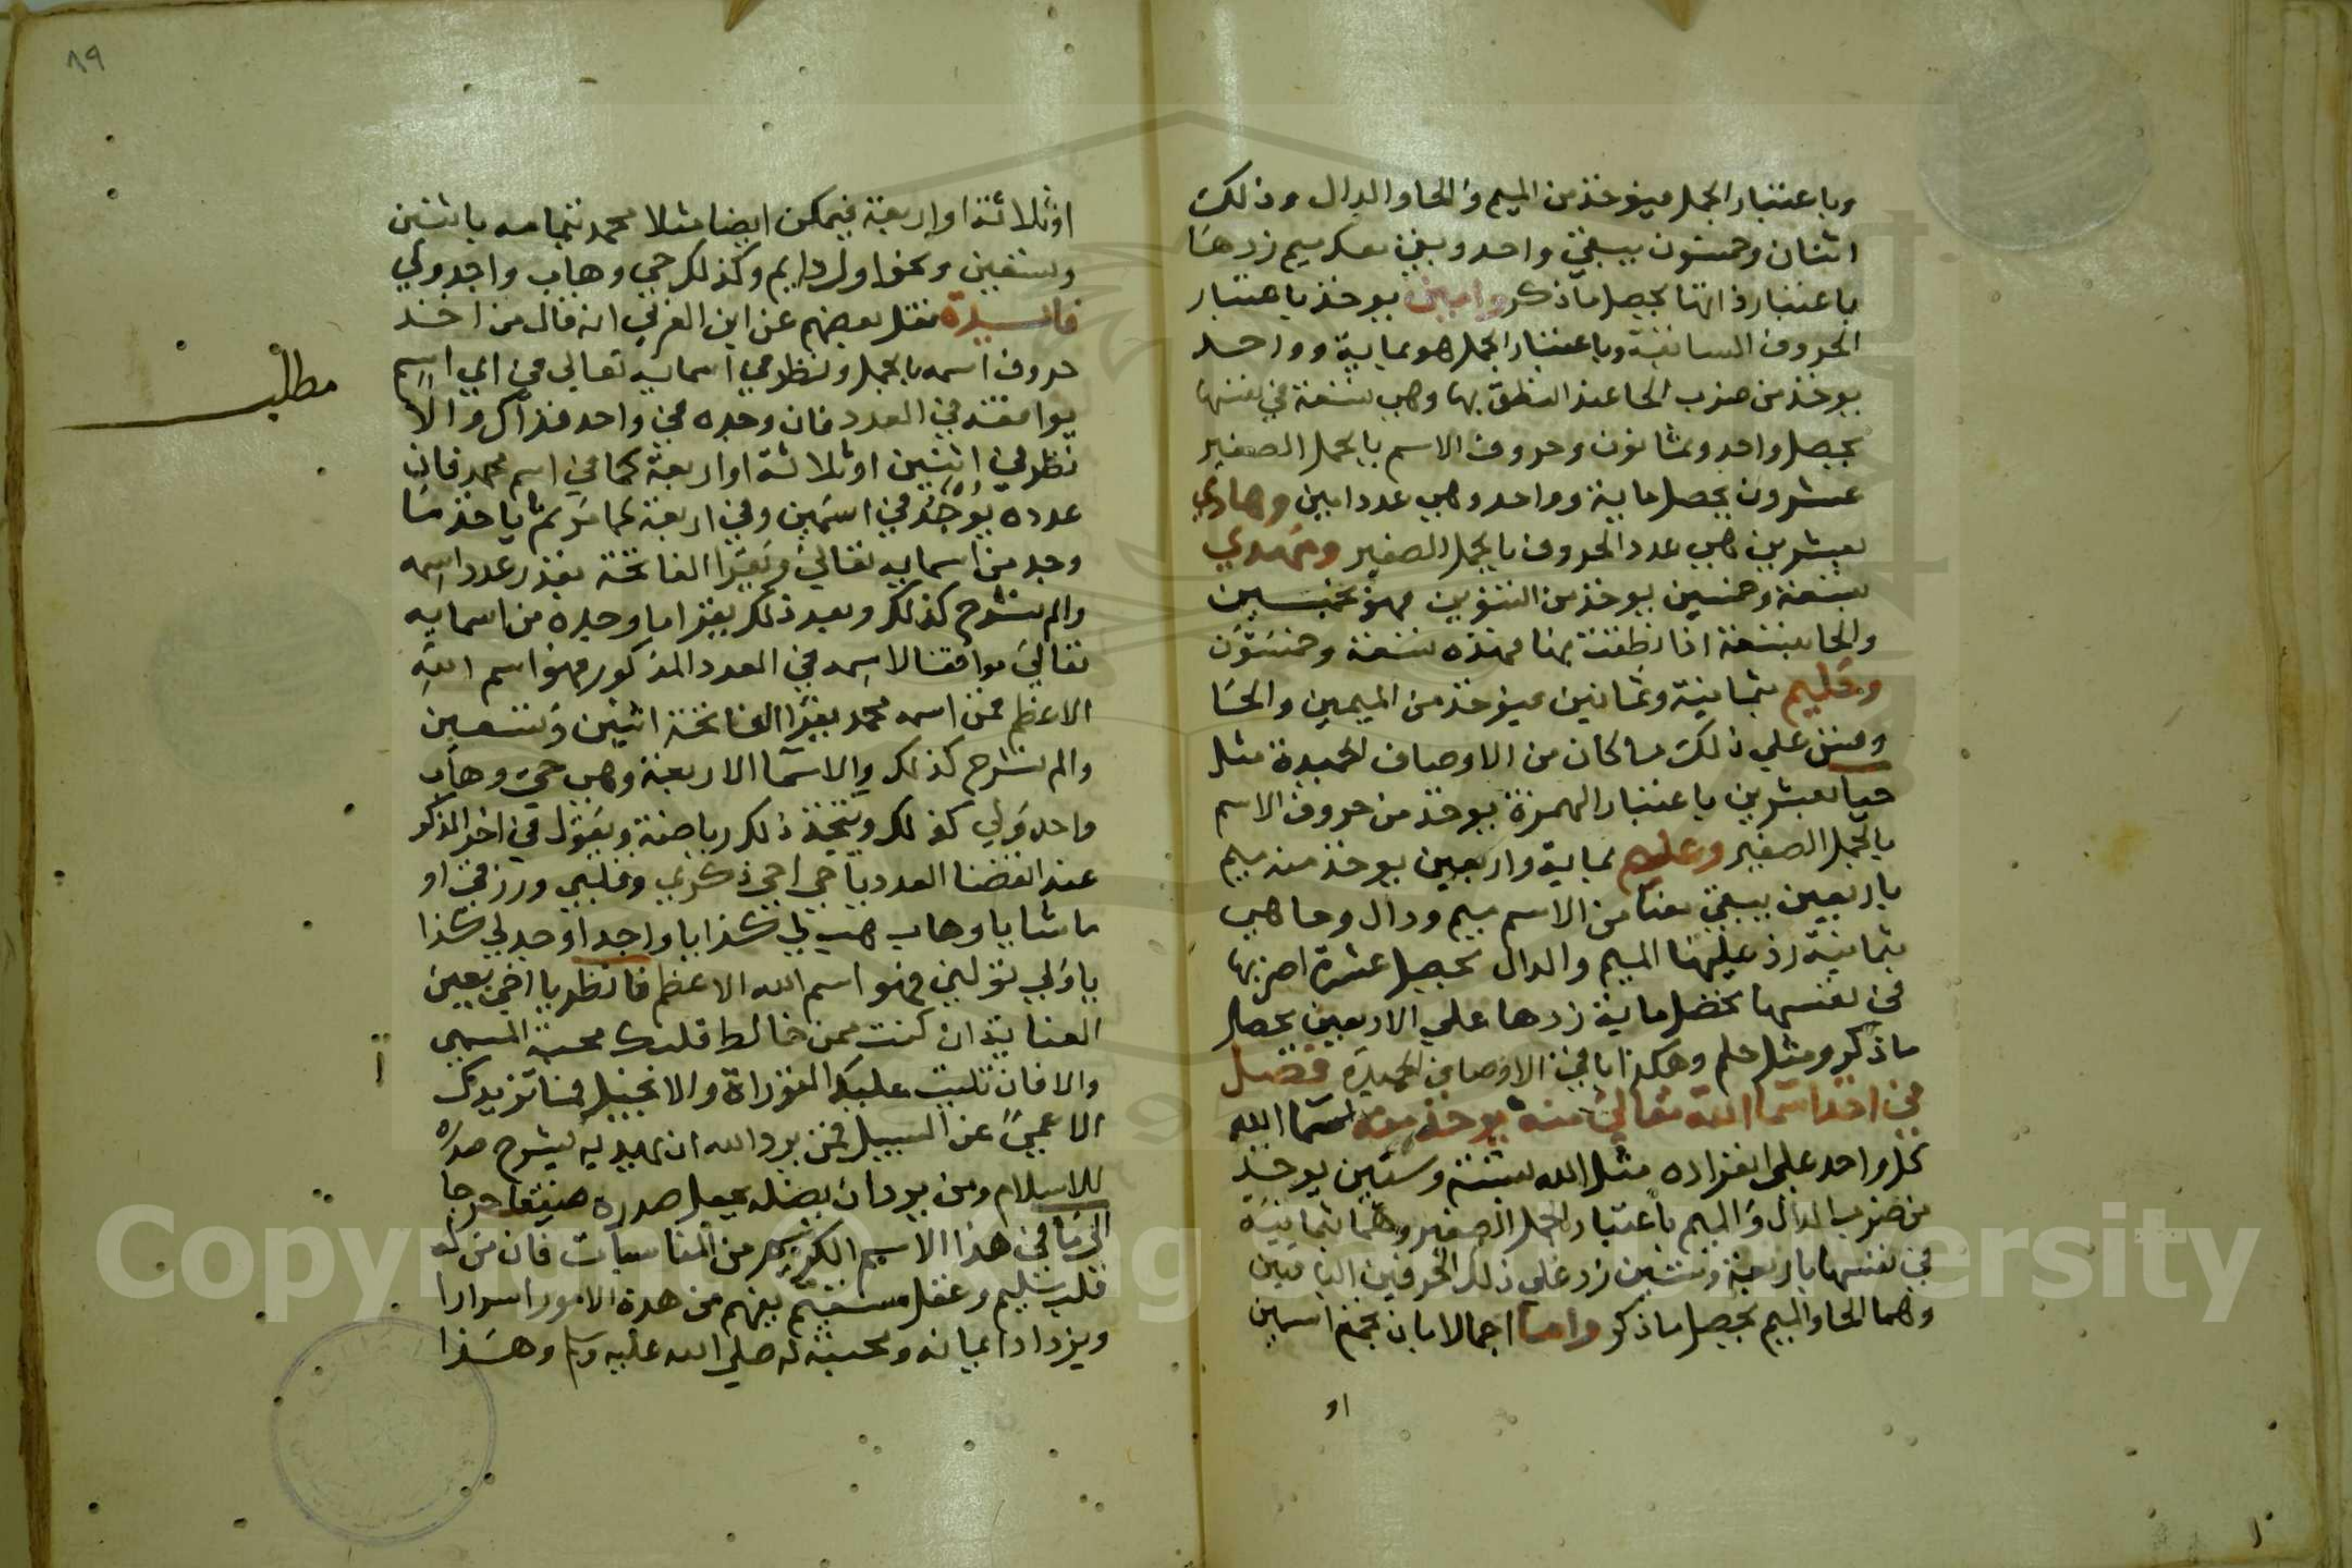 وباعتبار الجمل فيؤخذ من الميم والحا والدال وذلك
اثنان وخمسون يبقي واحد ويبقي معك ميم زدها
باعتبار ذاتها يحصل ما ذكر وامين يوخذ باعتبار
الحروف السابقة وباعتبار الجمل هو بماية وواحد
يوخذ من ضرب الحا عند النطق بها وهي تسعة في نفسها
يحصل واحد وثمانون وحروف الاسم بالجمل الصغير
عشرون يحصل ماية وواحد وهي عدد امين وهادي
بعشرين هي عدد الحروف بالجمل الصغير ومهدي
بتسعة وخمسين يوخذ من التنوين فهو بخمسين
والحا بتسعة اذا نطقت بها فهذه تسعة وخمسون
وحليم بثمانية وثمانين فيؤخذ من الميمين والحا
وقس علي ذلك ما كان من الاوصاف الحميدة مثل
حيا بعشرين باعتبار الهمزة يوخذ من حروف الاسم
بالجمل الصغير وعلم بماية واربعين يوخذ منه ميم
باربعين يبقي معنا من الاسم ميم ودال وحا هي
بثمانية زد عليها الميم والدال يحصل عشرة اضربها
في نفسها تحصل ماية زدها علي الاربعين يحصل
ما ذكر ومثل حلم وهكذا باقي الاوصاف الحميدة فصل
في اخذ اسما الله تعالي منه يوخذ منه اسما الله
كل واحد علي انفراده مثل الله بستة وستين يوخذ
من ضرب الدال والميم باعتبار الجمل الصغير وهما بثمانية
في نفسها باربعة وستين زد علي ذلك الحرفين الباقيين
وهما الحا والميم يحصل ما ذكر واما اجمالا بان تجمع اسمين
او
٨٩
او ثلاثة او اربعة فيمكن ايضا مثلا محمد بتمامه باثنين
وتسعين ونحو اول دايم وكذلك حي وهاب واجد ولي
فايدة نقل بعضهم عن ابن العربي انه قال من اخذ
حروف اسمه بالجمل ونظر في اسمايه تعالي في اي اسم
يوافقه في العدد فان وجده في واحد فذاك والا
نظر في اثنين او ثلاثة او اربعة كما في اسم محمد فان
عدده يوجد في اسمين وفي اربعة كما مر ثم ياخذ ما
وجد من اسمايه تعالي ويقرا الفاتحة بقدر عدد اسمه
والم نشرح كذلك وبعد ذلك يقرا ما وجده من اسمايه
تعالي موافقا لاسمه في العدد المذكور فهو اسم الله
الاعظم فمن اسمه محمد يقرا الفاتحة اثنين وتسعين
والم نشرح كذلك والاسما الاربعة وهي حي وهاب
واحد ولي كذلك ويتخذ ذلك رياضة ويقول في اخر الذكر
عند انقضا العدد يا حي احي ذكري وقلبي ورزقي او
ما شا يا وهاب هب لي كذا يا واجد اوجد لي كذا
يا ولي تولني فهو اسم الله الاعظم فانظر يا اخي بعين
العناية ان كنت ممن خالط قلبك محبة المسمي
والا فان تليت عليك التوراة والانجيل فما تزيدك
الا عمي عن السبيل فمن يرد الله ان يهديه يشرح صدره
للاسلام ومن يرد ان يضله يجعل صدره ضيقا حرجا
الي ما في هذا الاسم الكريم من المناسبات فان من له
قلب سليم وعقل مستقيم يفهم من هذه الامور اسرارا
ويزداد ايمانه ومحبته له صلي الله عليه وسلم وهذا
مطلب
Copyright © King University